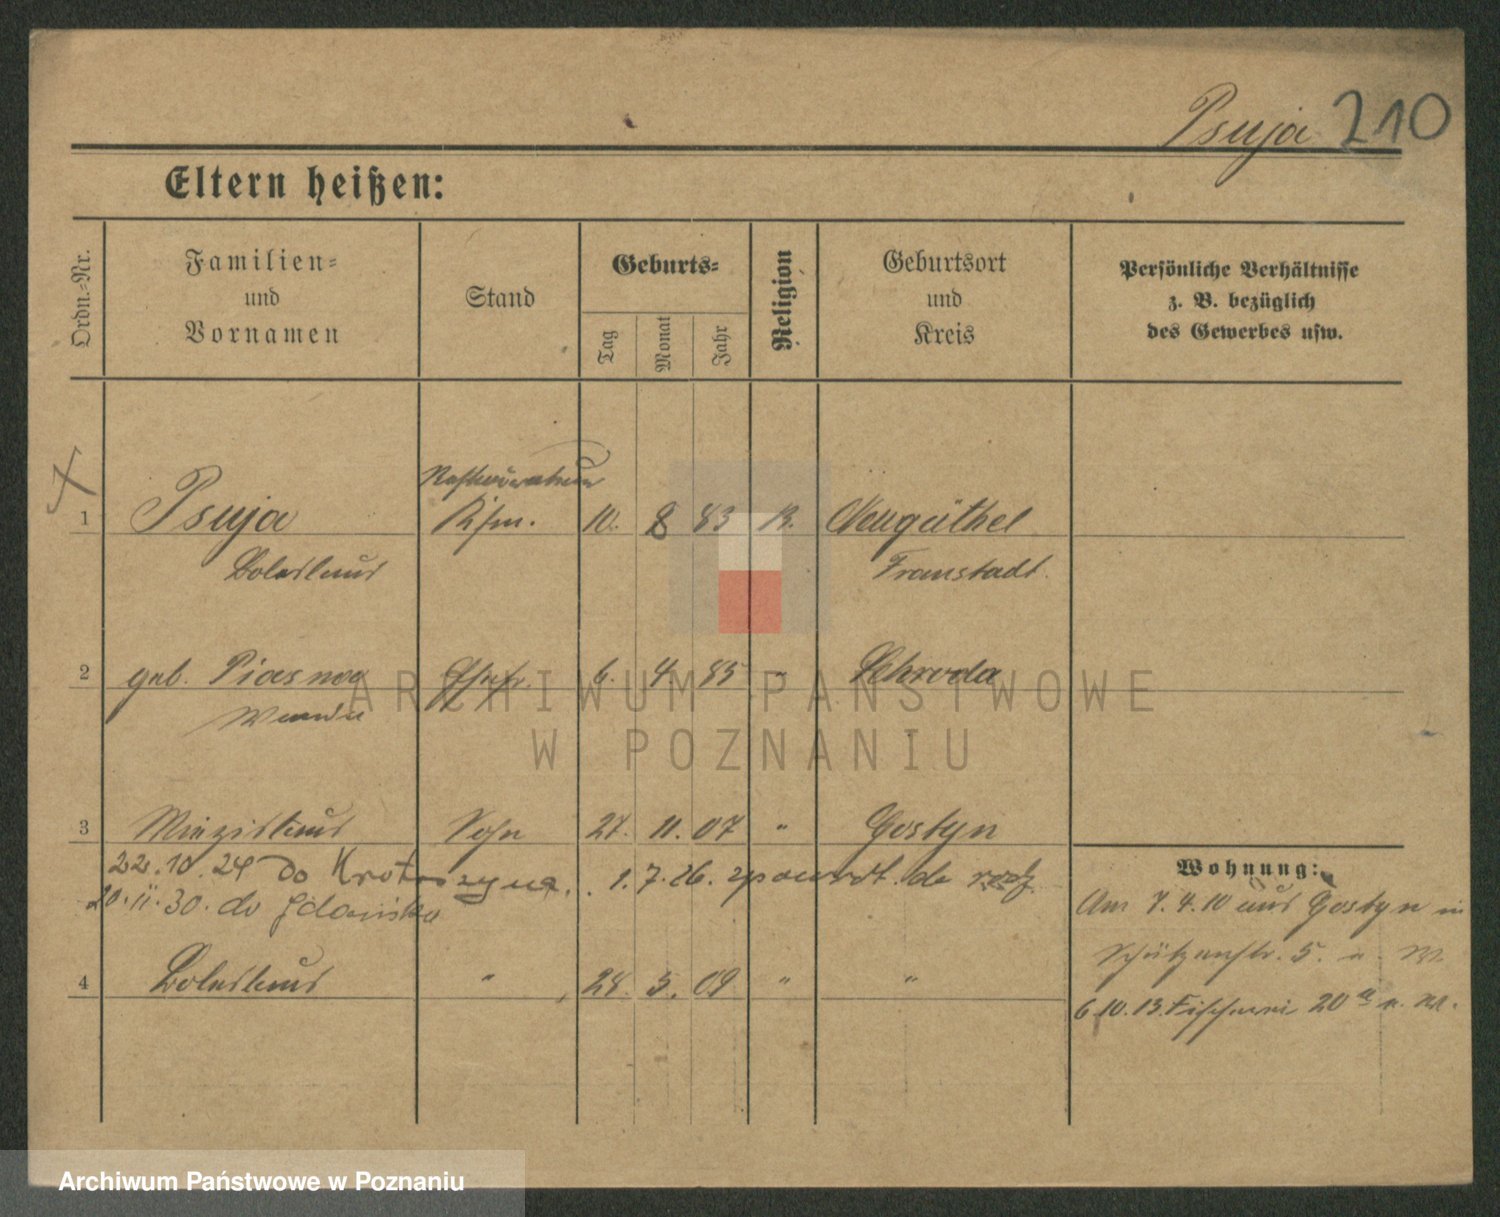 Psuja 210
Eltern heißen:
Ordn.-Nr.
Familien-
und
Vornamen
Stand
Geburts-
Tag
Monat
Jahr
Religion
Geburtsort
und
Kreis
Persönliche Verhältnisse
z. B. bezüglich
des Gewerbes usw.
1 Psuja Kfm. 10. 8 83 K. Neugüthel
Boleslaus Fraustadt.
2 geb. Piasna Ehefr. 6. 4 85 " Schroda
Wanda
3 Miezislaus Sohn 27. 11. 07 " Gostyn
22.10.24 do Krotoszyna. 1.7.26. z powrot. do
20.11.30. do Gdańska
4 Boleslaus " 28. 5. 09 " "
Wohnung:
Am 7.4.10 aus Gostyn in
Schützenstr. 5.
6.10.13. Fischerei 20
ARCHIWUM PAŃSTWOWE
W POZNANIU
Archiwum Państwowe w Poznaniu